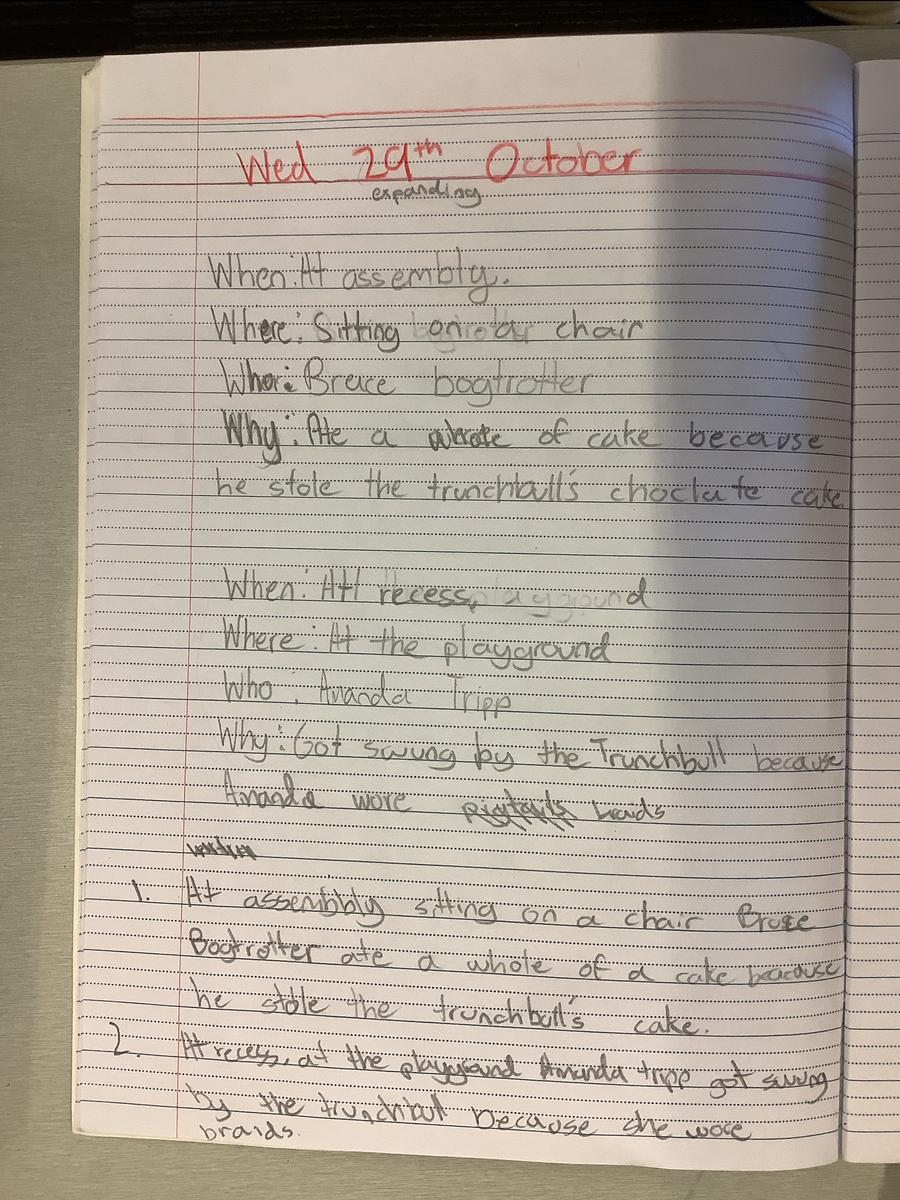 Wed 29th October
expanding
When: At assembly.
Where: Sitting on a chair
Who: Bruce bogtrotter
Why: Ate a whole of cake because
he stole the trunchbull's choclate cake
When: At recess,
Where: At the playground
Who: Amanda Tripp
Why: Got swung by the Trunchbull because
Amanda wore pigtails braids
1. At assembbly sitting on a chair Bruce
Bogtrotter ate a whole of a cake beacause
he stole the trunchbull's cake.
2. At recess, at the playground Amanda tripp got swung
by the because she wore
braids.